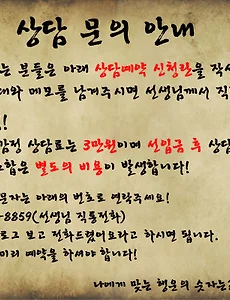 상담 문의 안내
는 분들은 아래 상담예약 신청란을 작성
대와 메모를 남겨주시면 선생님께서 직
!
감정 상담료는 3만원이며 선입금 후 상담
합은 별도의 비용이 발생합니다!
문자는 아래의 번호로 연락주세요!
-8859(선생님 직통전화)
로그 보고 전화드렸어요라고 하시면 됩니다.
미리 예약을 하셔야 합니다!
나에게 맞는 행운의 숫자는